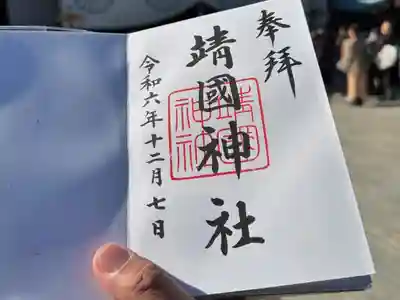 奉拝
靖國神社
令和六年十二月七日
靖國
神社